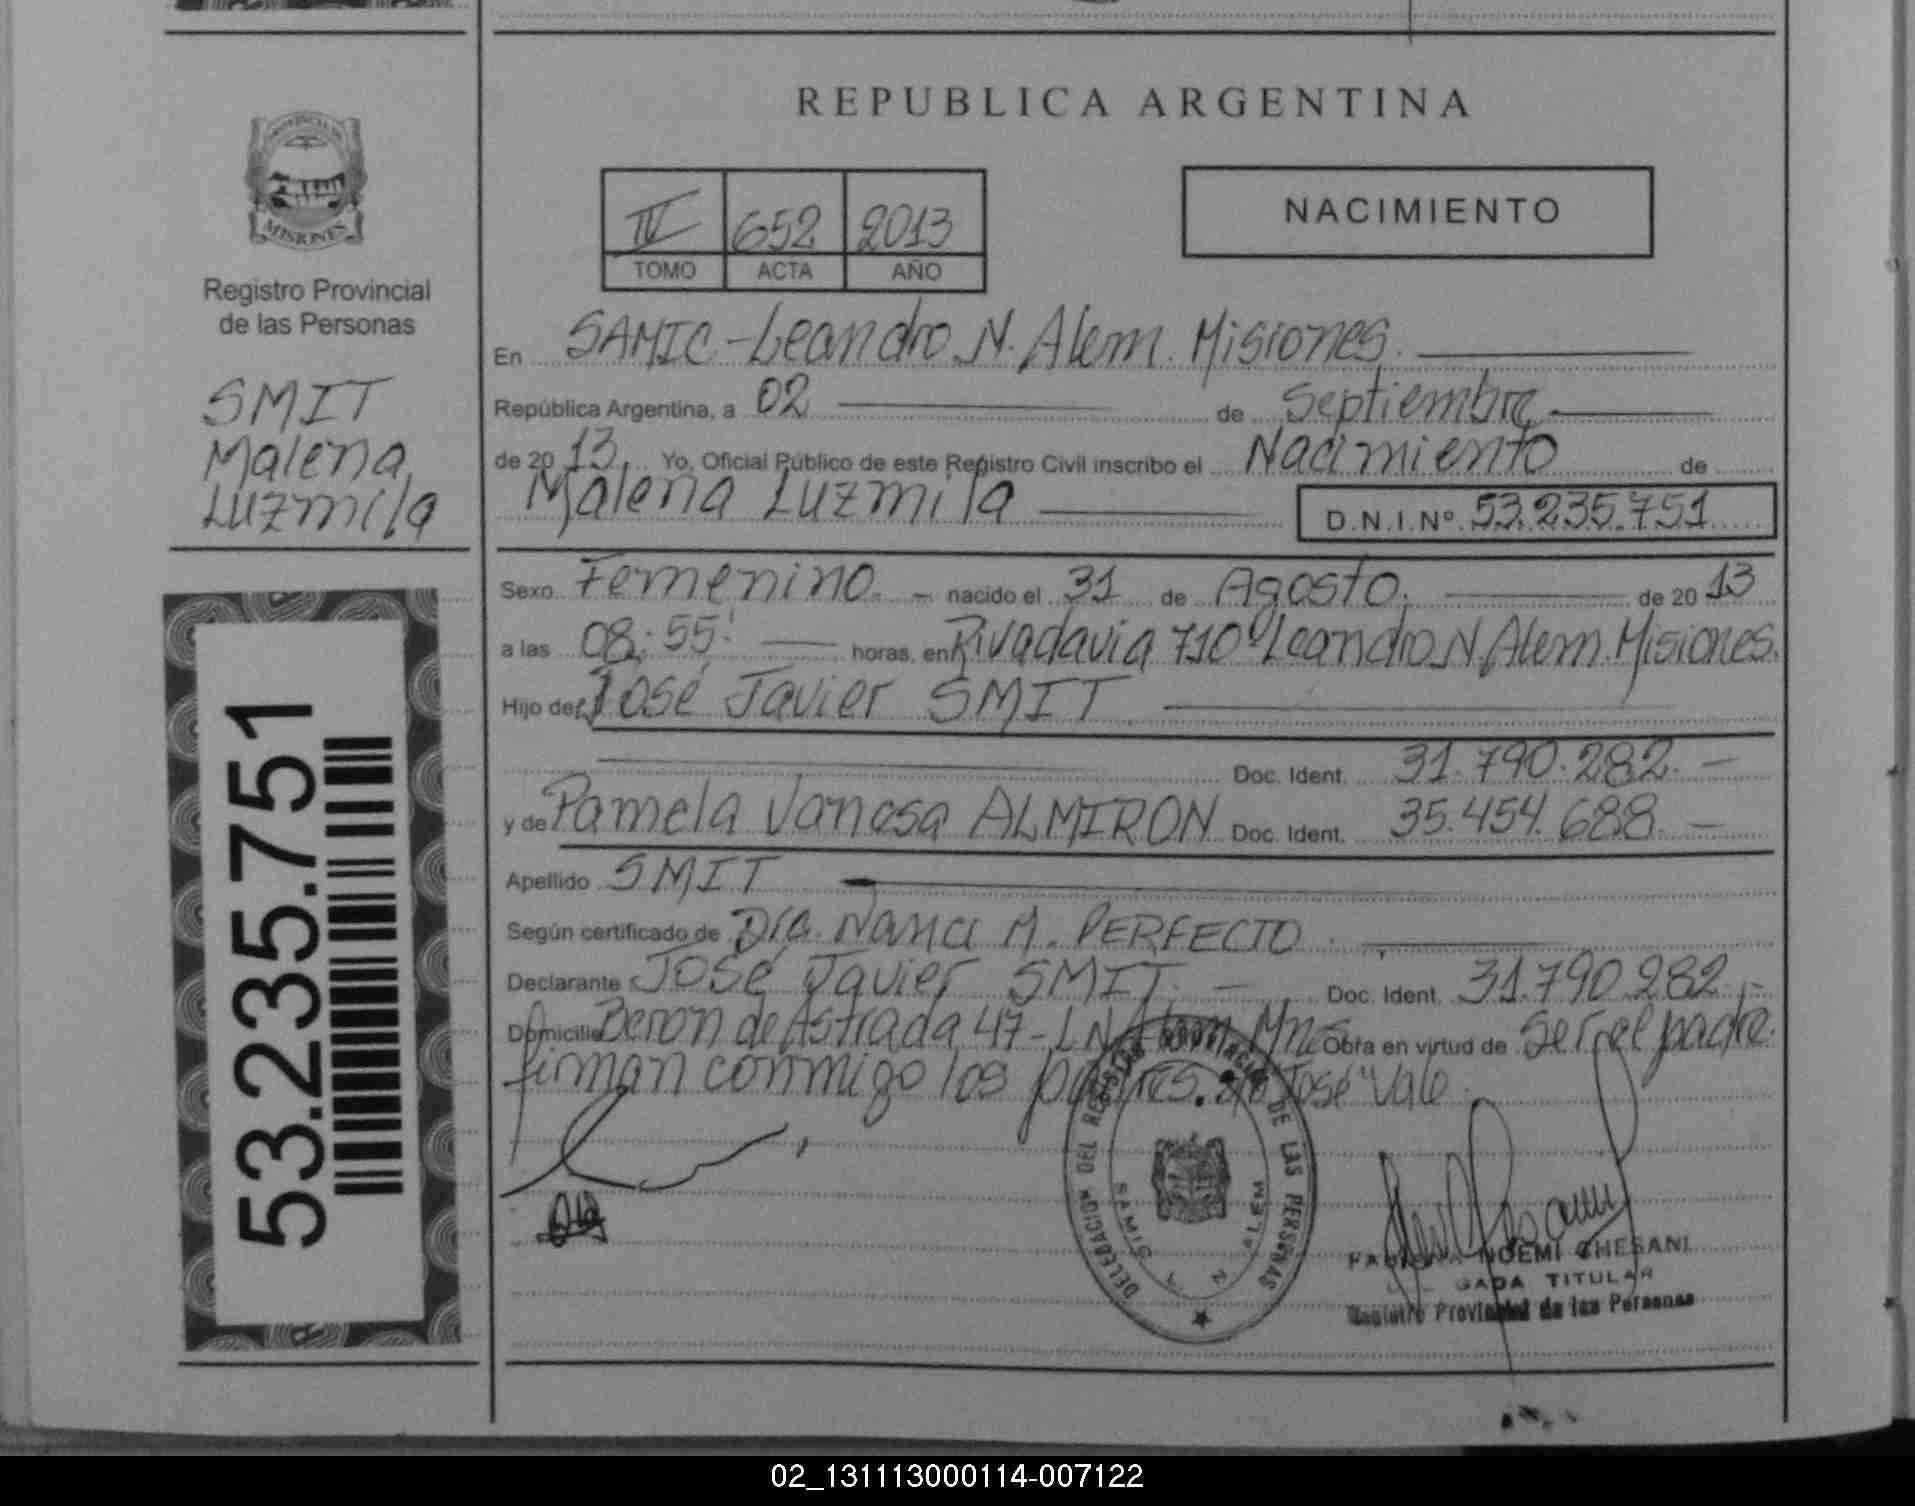 REPUBLICA ARGENTINA
PROVINCIA DE
MISIONES
Registro Provincial
de las Personas
SMIT
Malena
Luzmila
53.235.751
IV 652 2013
TOMO ACTA AÑO
NACIMIENTO
En SAMIC - Leandro N. Alem. Misiones.
República Argentina, a 02 de Septiembre
de 2013 Yo, Oficial Público de este Registro Civil inscribo el Nacimiento de
Malena Luzmila D.N.I.Nº 53.235.751
Sexo Femenino. - nacido el 31 de Agosto. de 2013
a las 08:55' horas, en Rivadavia 710 Leandro N. Alem. Misiones.
Hijo de José Javier SMIT
Doc. Ident. 31.790.282. -
y de Pamela Vanesa ALMIRON Doc. Ident. 35.454.688. -
Apellido SMIT
Según certificado de Dra. Nanci M. PERFECTO
Declarante José Javier SMIT. - Doc. Ident. 31.790.282. -
Domicilio Beron de Astrada 47 - L N Alem Mnes Obra en virtud de ser el padre.
firman conmigo los padres. S/r "José" Vale.
DELEGACION DEL REGISTRO PROVINCIAL DE LAS PERSONAS
SAMIC L N ALEM
NOEMI GHESANI
TITULAR
Registro Provincial de las Personas
02_131113000114-007122